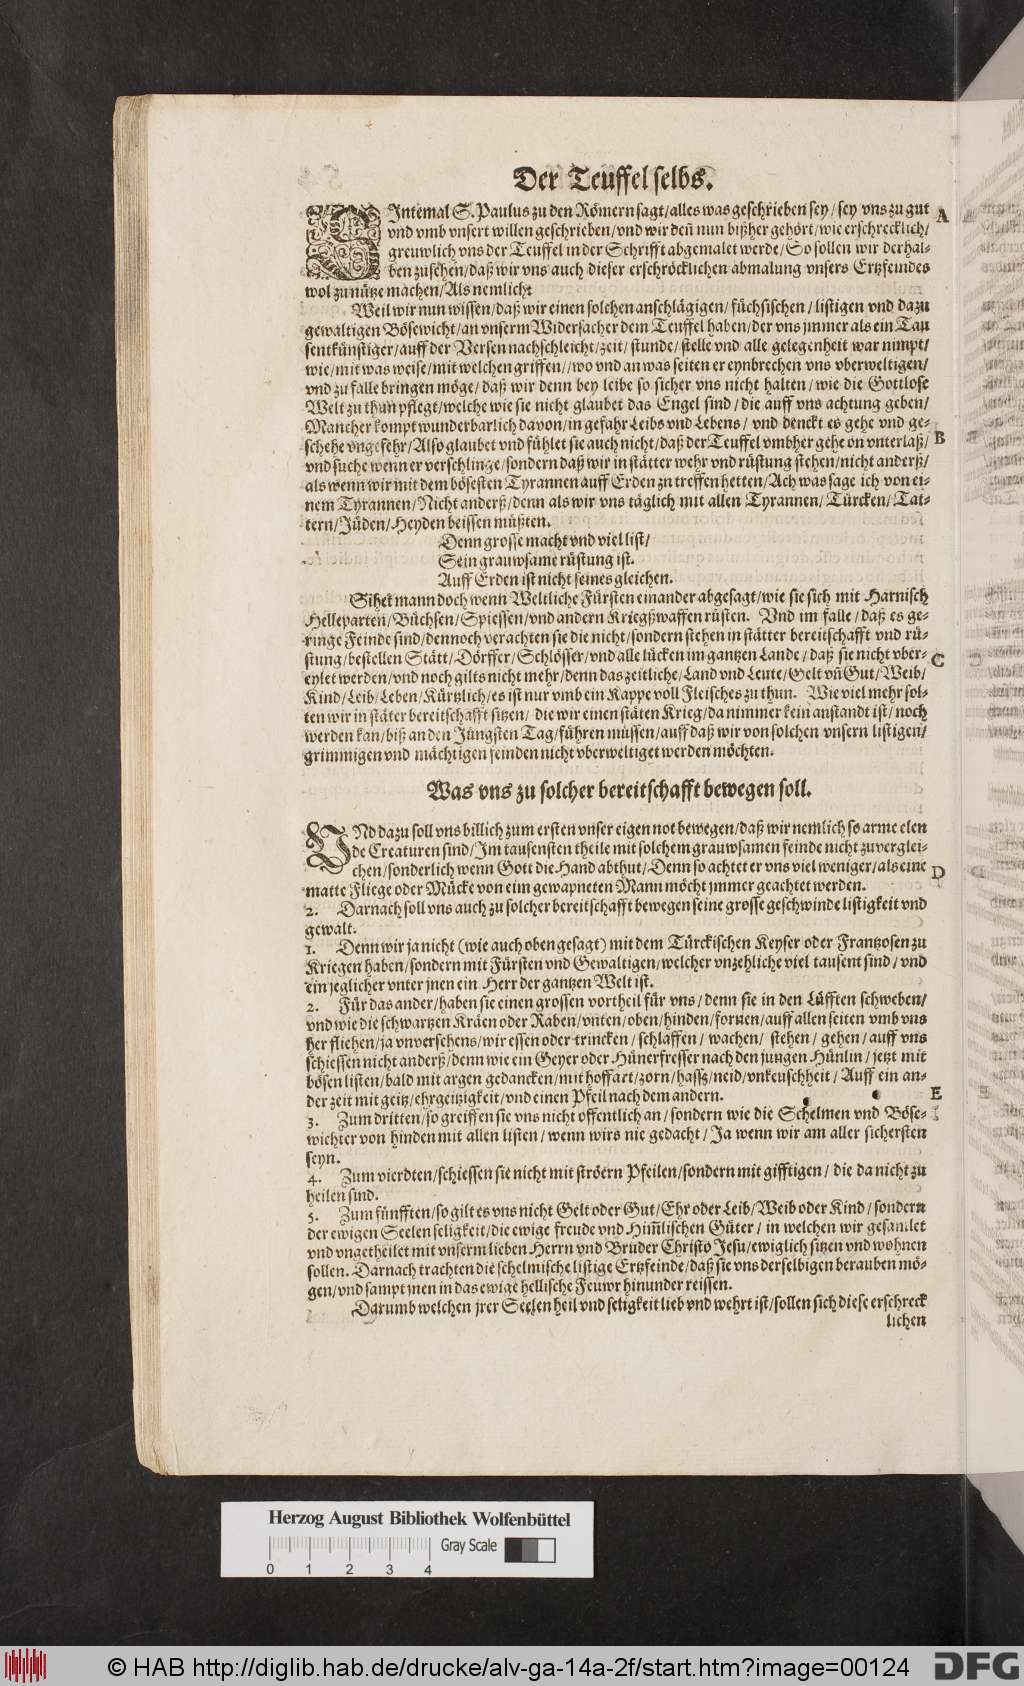 Der Teuffel selbs.
SIntemal S. Paulus zu den Römern sagt/alles was geschrieben sey/sey vns zu gut
vnd vmb vnsert willen geschrieben/vnd wir deñ nun bißher gehört/wie erschrecklich/
greuwlich vns der Teuffel in der Schrifft abgemalet werde/So sollen wir derhal-
ben zusehen/daß wir vns auch dieser erschröcklichen abmalung vnsers Ertzfeindes
wol zu nütze machen/Als nemlich:
Weil wir nun wissen/daß wir einen solchen anschlägigen/füchsischen/listigen vnd dazu
gewaltigen Bösewicht/an vnserm Widersacher dem Teuffel haben/der vns jmmer als ein Tau
sentkünstiger/auff der Versen nachschleicht/zeit/stunde/stelle vnd alle gelegenheit war nimpt/
wie/mit was weise/mit welchen griffen//wo vnd an was seiten er eynbrechen vns vberweltigen/
vnd zu falle bringen möge/daß wir denn bey leibe so sicher vns nicht halten/wie die Gottlose
Welt zu thun pflegt/welche wie sie nicht glaubet das Engel sind/die auff vns achtung geben/
Mancher kompt wunderbarlich davon/in gefahr Leibs vnd Lebens/vnd denckt es gehe vnd ge-
schehe vngefehr/Also glaubet vnd fühlet sie auch nicht/daß der Teuffel vmbher gehe on vnterlaß/
vnd suche wenn er verschlinge/sondern daß wir in stätter wehr vnd rüstung stehen/nicht anderß/
als wenn wir mit dem bösesten Tyrannen auff Erden zu treffen hetten/Ach was sage ich von ei-
nem Tyrannen/Nicht anderß/denn als wir vns täglich mit allen Tyrannen/Türcken/Tat-
tern/Jüden/Heyden beissen müßten.
Denn grosse macht vnd viel list/
Sein grauwsame rüstung ist.
Auff Erden ist nicht seines gleichen.
Sihet mann doch wenn Weltliche Fürsten einander abgesagt/wie sie sich mit Harnisch
Helleparten/Büchsen/Spiessen/vnd andern Kriegßwaffen rüsten. Vnd im falle/daß es ge-
ringe Feinde sind/dennoch verachten sie die nicht/sondern stehen in stätter bereitschafft vnd rü-
stung/bestellen Stätt/Dörffer/Schlösser/vnd alle lücken im gantzen Lande/daß sie nicht vber-
eylet werden/vnd noch gilts nicht mehr/denn das zeitliche/Land vnd Leute/Gelt vñ Gut/Weib/
Kind/Leib/Leben/Kürtzlich/es ist nur vmb ein Kappe voll Fleisches zu thun. Wie viel mehr sol-
ten wir in stäter bereitschafft sitzen/die wir einen stäten Krieg/da nimmer kein anstandt ist/noch
werden kan/biß an den Jüngsten Tag/führen müssen/auff daß wir von solchen vnsern listigen/
grimmigen vnd mächtigen feinden nicht vberweltiget werden möchten.
Was vns zu solcher bereitschafft bewegen soll.
VNd dazu soll vns billich zum ersten vnser eigen not bewegen/daß wir nemlich so arme elen
de Creaturen sind/Im tausensten theile mit solchem grauwsamen feinde nicht zuverglei-
chen/sonderlich wenn Gott die Hand abthut/Denn so achtet er vns viel weniger/als eine
matte Fliege oder Mücke von eim gewapneten Mann möcht jmmer geachtet werden.
2. Darnach soll vns auch zu solcher bereitschafft bewegen seine grosse geschwinde listigkeit vnd
gewalt.
1. Denn wir ja nicht (wie auch oben gesagt) mit dem Türckischen Keyser oder Frantzosen zu
Kriegen haben/sondern mit Fürsten vnd Gewaltigen/welcher vnzehliche viel tausent sind/vnd
ein jeglicher vnter jnen ein Herr der gantzen Welt ist.
2. Für das ander/haben sie einen grossen vortheil für vns/denn sie in den Lüfften schweben/
vnd wie die schwartzen Kräen oder Raben/vnten/oben/hinden/fornen/auff allen seiten vmb vns
her fliehen/ja vnversehens/wir essen oder trincken/schlaffen/wachen/stehen/gehen/auff vns
schiessen nicht anderß/denn wie ein Geyer oder Hünerfresser nach den jungen Hünlin/jetzt mit
bösen listen/bald mit argen gedancken/mit hoffart/zorn/hassz/neid/vnkeuschheit/Auff ein an-
der zeit mit geitz/ehrgeitzigkeit/vnd einen Pfeil nach dem andern.
3. Zum dritten/so greiffen sie vns nicht offentlich an/sondern wie die Schelmen vnd Böse-
wichter von hinden mit allen listen/wenn wirs nie gedacht/Ja wenn wir am aller sichersten
seyn.
4. Zum vierdten/schiessen sie nicht mit ströern Pfeilen/sondern mit gifftigen/die da nicht zu
heilen sind.
5. Zum fünfften/so gilt es vns nicht Gelt oder Gut/Ehr oder Leib/Weib oder Kind/sondern
der ewigen Seelen seligkeit/die ewige freude vnd Himlischen Güter/in welchen wir gesamlet
vnd vngetheilet mit vnserm lieben Herrn vnd Bruder Christo Jesu/ewiglich sitzen vnd wohnen
sollen. Darnach trachten die schelmische listige Ertzfeinde/daß sie vns derselbigen berauben mö-
gen/vnd sampt jnen in das ewige hellische Feuwr hinunder reissen.
Darumb welchen jrer Seelen heil vnd seligkeit lieb vnd wehrt ist/sollen sich diese erschreck
lichen
A
B
C
D
E
Herzog August Bibliothek Wolfenbüttel
Gray Scale
0 1 2 3 4
© HAB http://diglib.hab.de/drucke/alv-ga-14a-2f/start.htm?image=00124
DFG